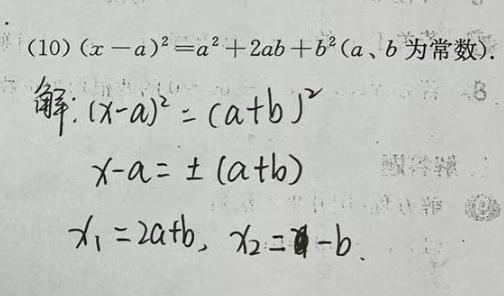 (10) (x-a)²=a²+2ab+b²(a、b为常数).
解:(x-a)²=(a+b)²
x-a=±(a+b)
x₁=2a+b, x₂=-b.